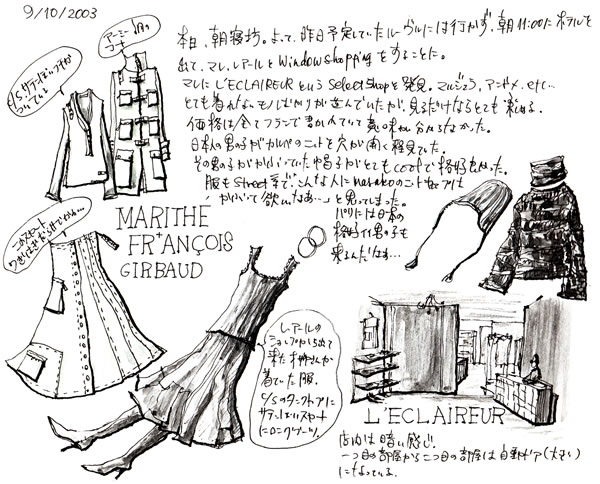 9/10/2003
本日、朝寝坊。よって、昨日予定していたルーヴルには行かず、朝11:00にホテルを
出て、マレ、レアールとWindow shoppingをすることに。
マレにL'ECLAIREURというSelect shopを発見。マルジェラ、アンドゥメ、etc...
とても着れないモノばかりが並んでいたが、見るだけならとても楽める。
価格は全てフランで書かれていて意味が分らなかった。
日本人の男の子がカルペのニットを穴が開く程見ていた。
その男の子がかぶっていた帽子がとてもcoolで格好良かった。
服もstreet系で、こんな人にmasakoのニットウェアは
「かぶって欲しいなあ…」と思ってました。
パリには日本の
格好いい男の子も
来るんだなあ…
アーミー風の
コート
C/Sサテン
ついている
このスカート
MARITHE
FR+ANÇOIS
GIRBAUD
レアールの
ショップから出て
来たお姉さんが
着ていた服。
C/Sのタンクトップに
サテンぽいスカート
にロングブーツ。
L'ECLAIREUR
店内は暗い感じ
一つ目の部屋から二つ目の部屋は自動ドア(大きい)
になっている。